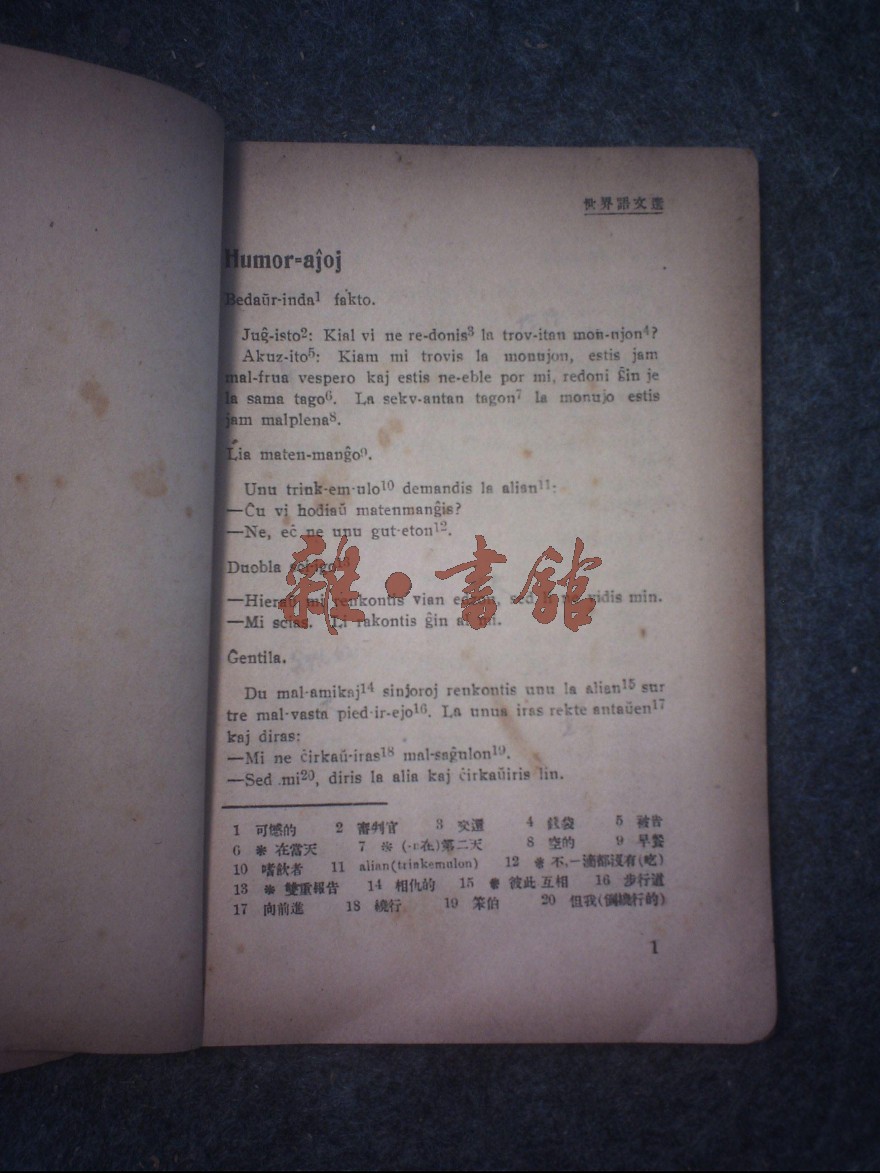 世界語文選
Humor=aĵoj
Bedaŭr-inda1 fakto.
Juĝ-isto2: Kial vi ne re-donis3 la trov-itan mon-ujon4?
Akuz-ito5: Kiam mi trovis la monujon, estis jam
mal-frua vespero kaj estis ne-eble por mi, redoni ĝin je
la sama tago6. La sekv-antan tagon7 la monujo estis
jam malplena8.
Lia maten-manĝo9.
Unu trink-em-ulo10 demandis la alian11:
—Ĉu vi hodiaŭ matenmanĝis?
—Ne, eĉ ne unu gut-eton12.
Duobla
—Hieraŭ mi renkontis vian edzon, sed li ne vidis min.
—Mi scias. Li rakontis ĝin al mi.
Ĝentila.
Du mal-amikaj14 sinjoroj renkontis unu la alian15 sur
tre mal-vasta pied-ir-ejo16. La unua iras rekte antaŭen17
kaj diras:
—Mi ne ĉirkaŭ-iras18 mal-saĝulon19.
—Sed mi20, diris la alia kaj ĉirkaŭiris lin.
1 可憾的 2 審判官 3 交還 4 錢袋 5 被告
6 ※ 在當天 7 ※ (-n在)第二天 8 空的 9 早餐
10 嗜飲者 11 alian(trinkemulon) 12 ※ 不,一滴都沒有(吃)
13 ※ 雙重報告 14 相仇的 15 ※ 彼此互相 16 步行道
17 向前進 18 繞行 19 笨伯 20 但我(倒繞行的)
1
雜·書館